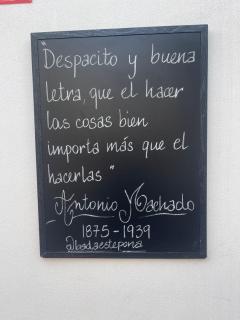 "Despacito y buena
letra, que el hacer
las cosas bien
importa más que el
hacerlas"
Antonio Machado
1875-1939